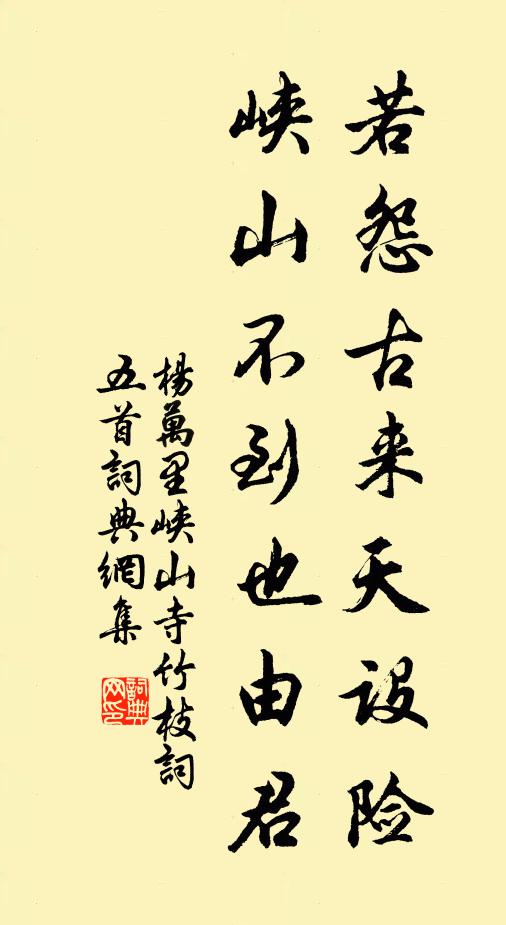 若怨古来天设险
峡山不到也由君
楊萬里峡山寺竹枝詞
五首詞典網集
詞典
网印